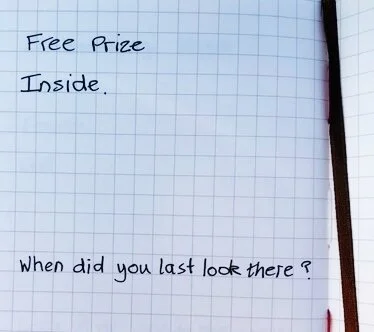 Free Prize
Inside.
When did you last look there?